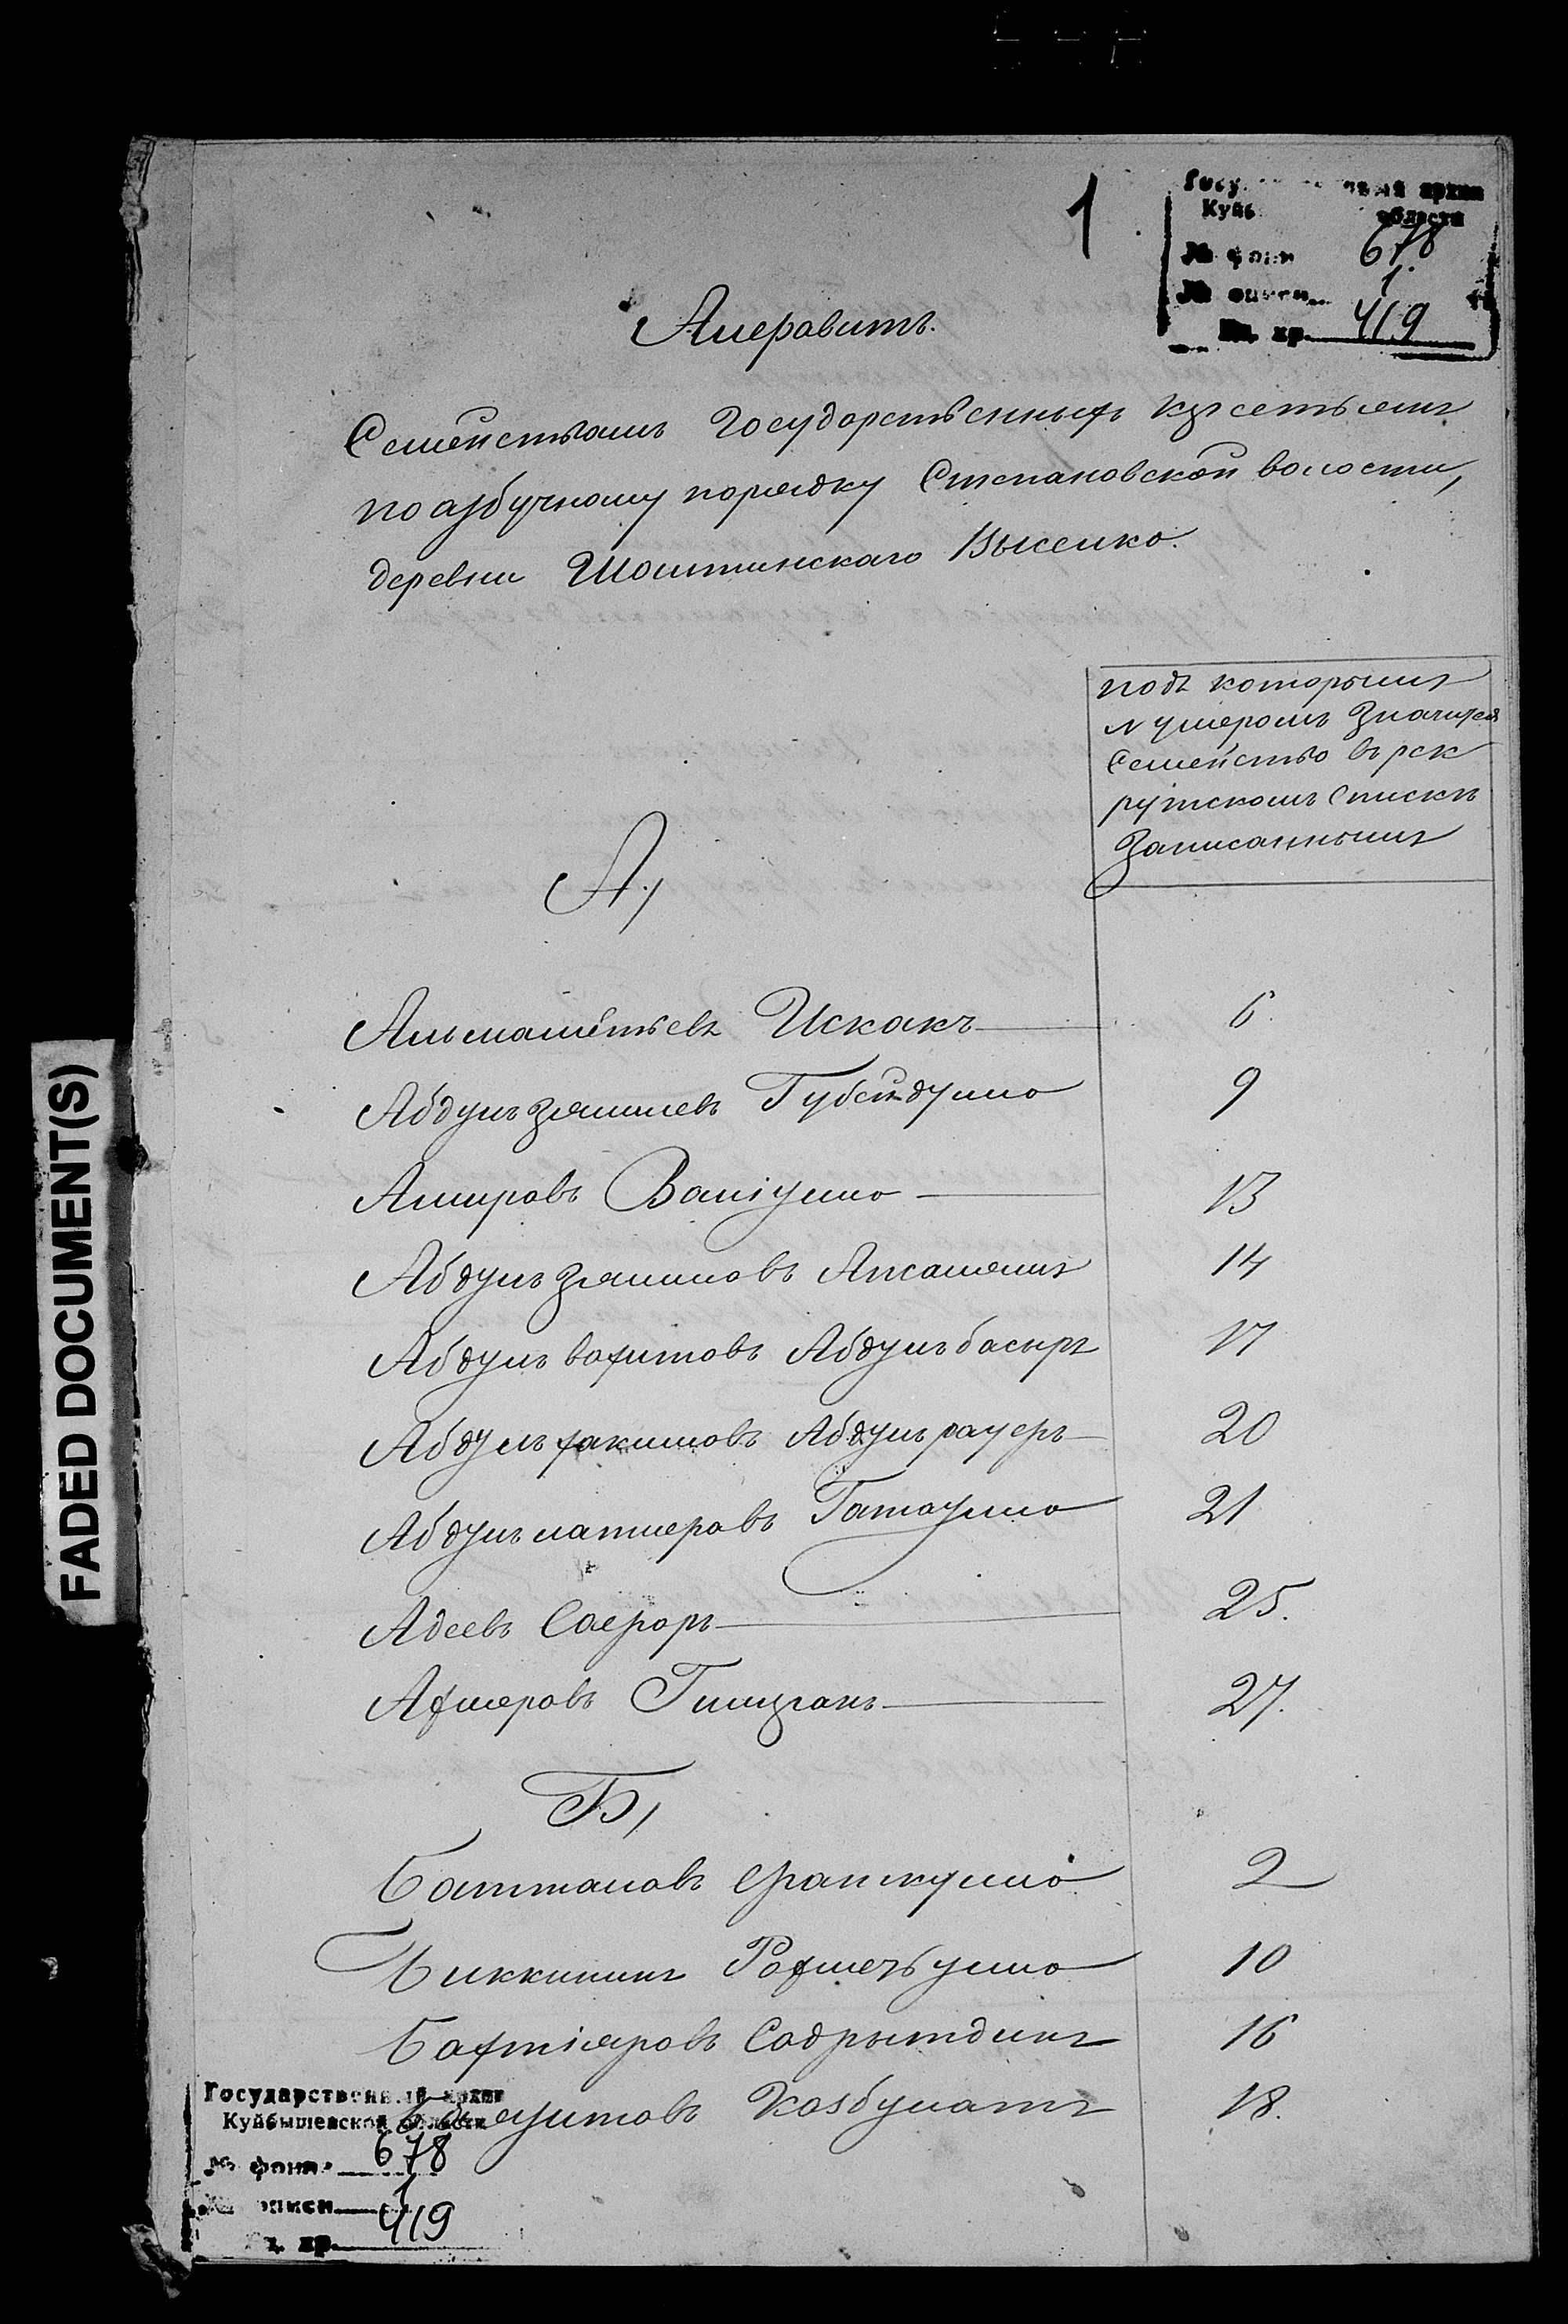 1
Государственный архив
Куйбышевской области
№ фонда 678
№ описи 1
Ед. хр. 419
Алфавитъ.
Семействамъ Государственныхъ крестьянъ
по азбучному порядку Степановской волости,
деревни Шаитинскаго Выселка.
подъ которымъ
нумеромъ значится
Семейство въ рек
рутскомъ Спискѣ
Записаннымъ
А)
Альмашётьевъ Искакъ 6
Абдулъзялилевъ Губейдулла 9
Амировъ Валіулла 13
Абдулъзялиловъ Аксалямъ 14
Абдулъвахитовъ Абдулъбасыръ 17
Абдулъхакимовъ Абдулърауфъ 20
Абдулълатифовъ Гатаулла 21
Адеевъ Сафаръ 25.
Ахмеровъ Гилязъ 27.
Б)
Батталовъ Фаткулла 2
Биккининъ Рахметъулла 10
Бахтіяровъ Садрытдинъ 16
Баязитовъ Казбулатъ 18.
Государственный архив
Куйбышевской области
№ фонда 678
№ описи 1
Ед. хр. 419
FADED DOCUMENT(S)